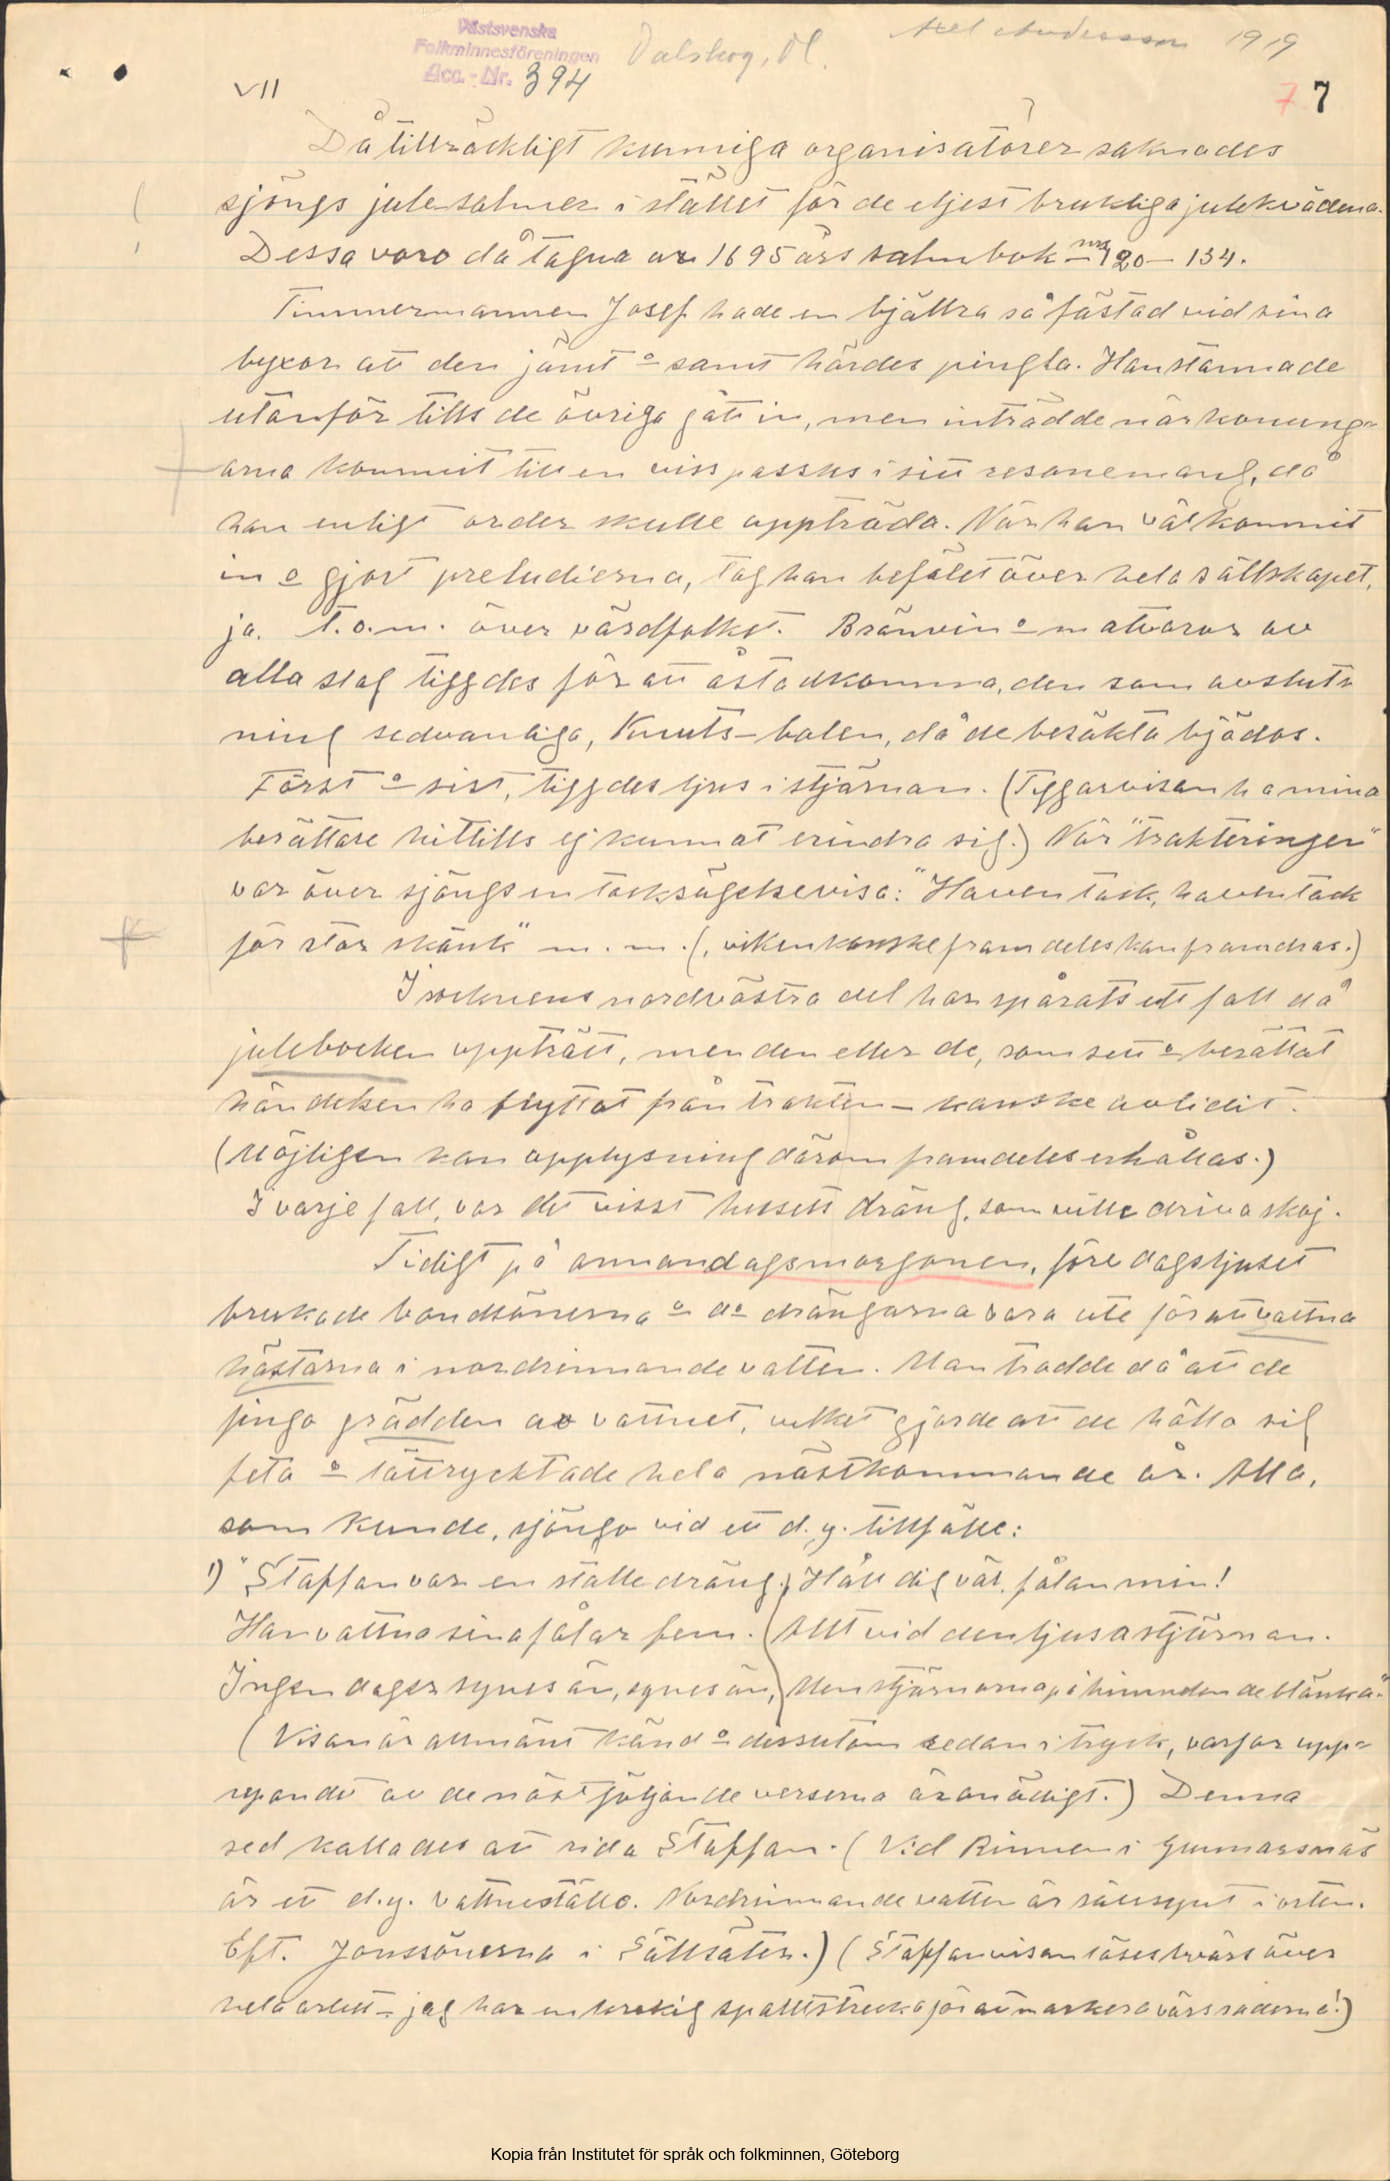 Västsvenska
Folkminnesföreningen
Acc.-Nr. 394
Dalskog, Dl.
Axel Andersson 1919
VII
7 7
Då tillräckligt kunniga organisatörer saknades
sjöngs julesalmer i stället för de eljest brukliga julekväderna.
Dessa voro då tagna ur 1695 års salmbok nr 120 – 134.
Timmermannen Josef hade en bjällra så fästad vid sina
byxor att den jämt o samt hördes pingla. Han stannade
utanför tills de övriga gått in, men inträdde när konung-
arna kommit till en viss passus i sitt resonemang, då
han enligt order skulle uppträda. När han väl kommit
in o gjort preludierna, tog han befälet över hela sällskapet,
ja. t.o.m. över värdfolket. Bränvin o matvaror av
alla slag tiggdes för att åstadkomma, den som avslut-
ning sedvanliga, Knuts-balen, då de besökta bjödos.
Först o sist, tiggdes ljus i stjärnan. (Tiggarvisan ha mina
berättare hittills ej kunnat erindra sig.) När "trakteringen"
var över sjöngs en tacksägelsevisa: "Haven tack, haven tack
för stor skänk" m.m. (, vilken kanske framdeles kan framdras.)
I socknens nordvästra del har spårats ett fall då
julebocken uppträtt, men den eller de, som sett o berättat
händelsen ha flyttat från trakten – kanske avlidit.
(Möjligen kan upplysning därom framdeles erhållas.)
I varje fall, var det visst husets dräng, som ville driva skoj.
Tidigt på annandagsmorgonen, före dagsljuset
brukade bondsönerna o do drängarna vara ute för att vattna
hästarna i nordrinnande vatten. Man trodde då att de
finge grädden av vattnet, vilket gjorde att de hålla sig
feta o lättryktade hela nästkommande år. Alla,
som kunde, sjöngo vid ett d.y. tillfälle:
1) "Staffan var en stalledräng. Håll dig väl, fålan min!
Han vattna sina fålar fem. Allt vid den ljusa stjärnan.
Ingen dager synes än, synes än, Men stjärnorna på himmelen de blänka."
(Visan är allmänt känd o dessutom redan i tryck, varför upp-
repandet av de näst följande verserna är onödigt.) Denna
sed kallades att rida Staffan. (Vid Rinnen i Gunnarsnäs
är ett d.y. vattneställe. Nordrinnande vatten är sällsynt i orten.
Eft. Jonssönerna i Sällsäter.) (Staffanvisan läses tvärs över
hela arket – jag har en krokig spaltstreck för att markera värsraderna!)
Kopia från Institutet för språk och folkminnen, Göteborg